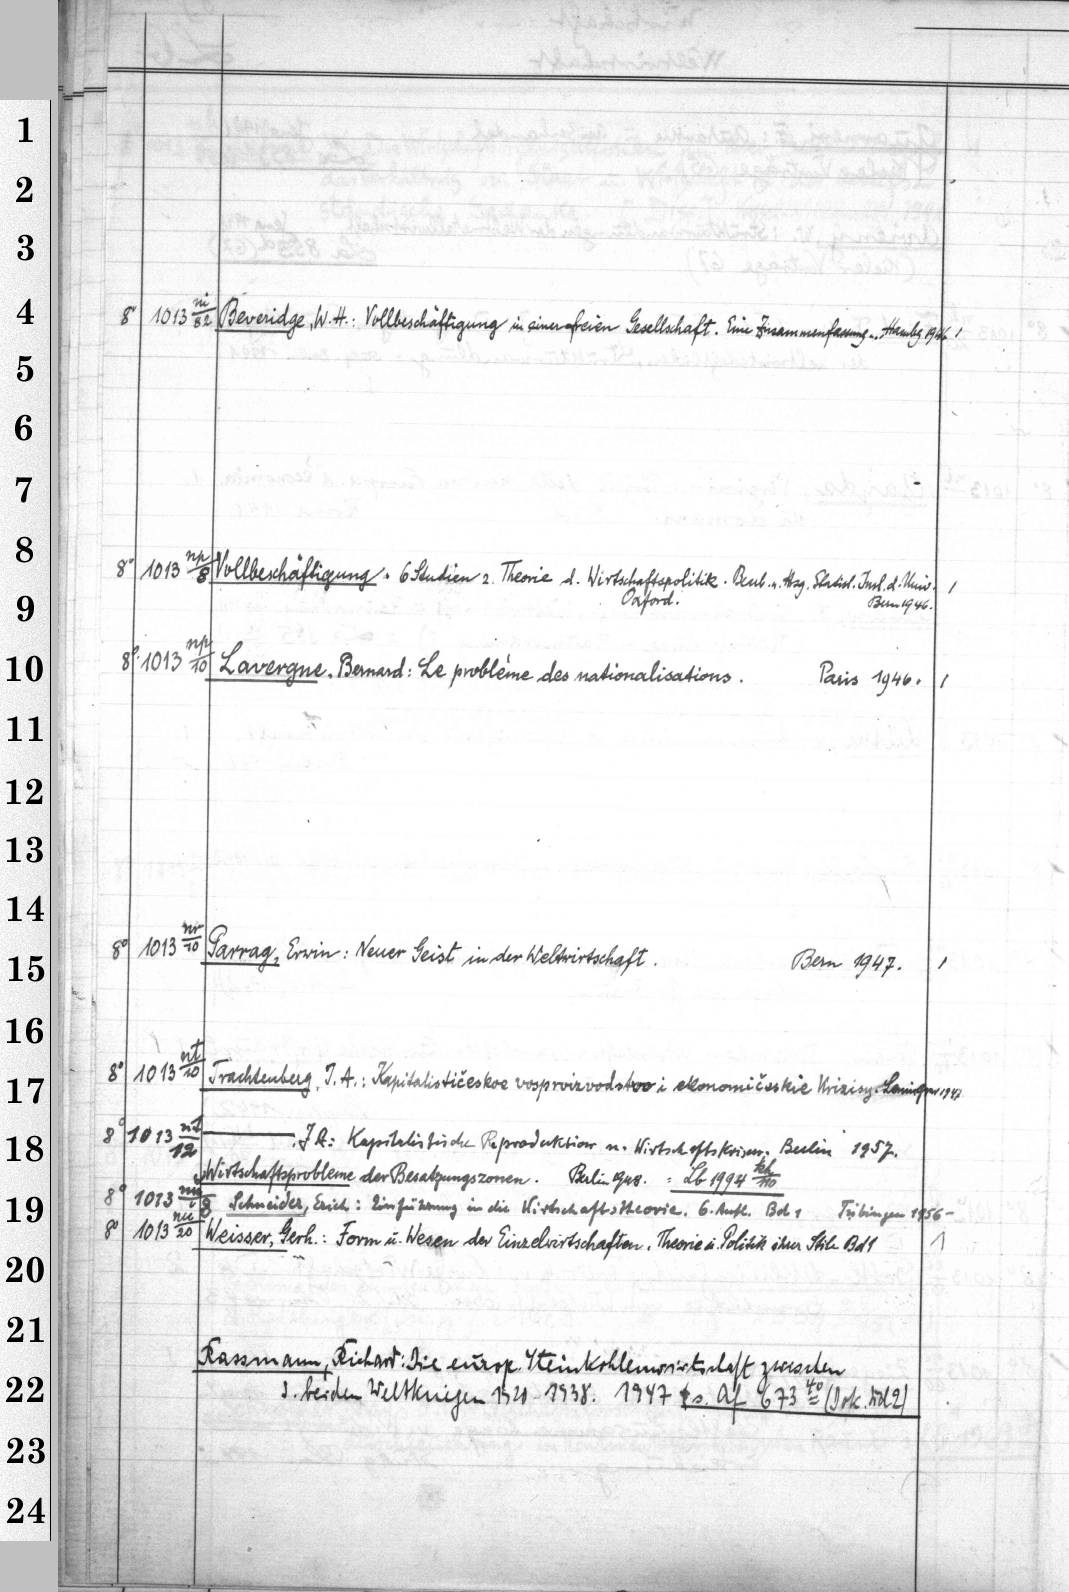 1
2
3
4
8° 1013 ni/82 Beveridge, W. H.: Vollbeschäftigung in einer freien Gesellschaft. Eine Zusammenfassung... Hambg 1946 1
5
6
7
8
8° 1013 np/8 Vollbeschäftigung. 6 Studien z. Theorie d. Wirtschaftspolitik. Hrsg. Statist. Inst. d. Univ. 1
9
Oxford. Bern 1946.
10
8° 1013 np/10 Lavergne, Bernard: Le problème des nationalisations. Paris 1946. 1
11
12
13
14
15
8° 1013 nr/10 Parrag, Erwin: Neuer Geist in der Weltwirtschaft. Bern 1947. 1
16
17
8° 1013 nt/10 Trachtenberg, I. A.: Kapitalističeskoe vosproizvodstvo i ekonomičeskie Krizisy.
18
8° 1013 nt/12 — J A: Kapitalistische Reproduktion u. Wirtschaftskrisen. Berlin 1957.
Wirtschaftsprobleme der Besatzungszonen. Berlin 1948. = Lb 1994
19
8° 1013 Schneider, Erich: Einführung in die Wirtschaftstheorie. 6. Aufl. Bd 1 Tübingen 1956 –
8° 1013 nu/20 Weisser, Gerh.: Form u. Wesen der Einzelwirtschaften. Theorie u. Politik ihrer Stile Bd 1 1
20
21
Rassmann, Richard: Die europ. Steinkohlenwirtschaft zwischen
22
d. beiden Weltkriegen 1920–1938. 1947 s. Af 673
23
24